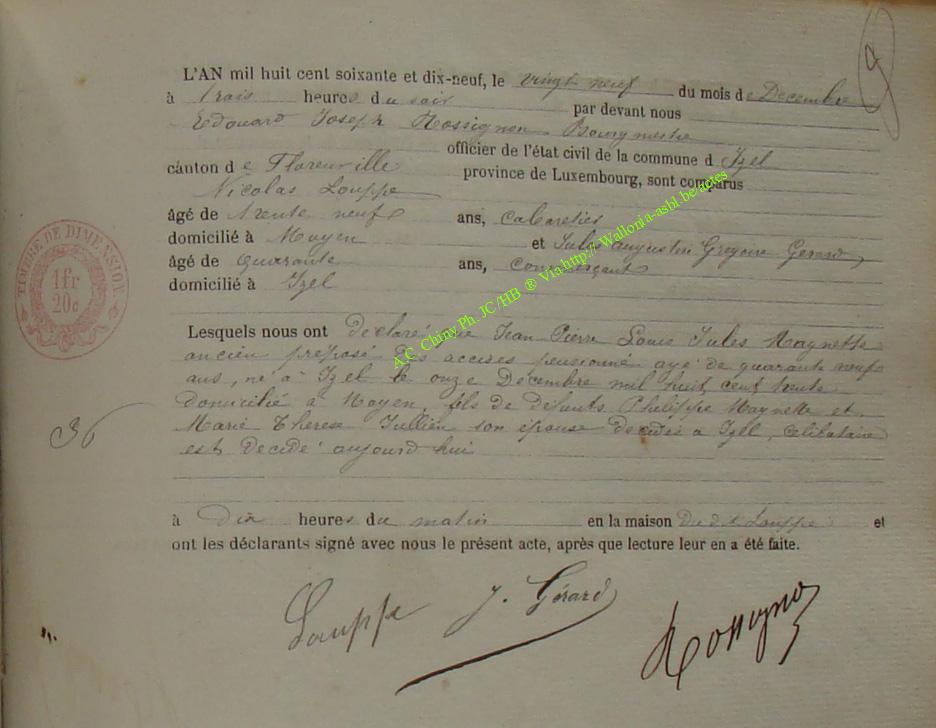 L'AN mil huit cent soixante et dix-neuf, le vingt neuf du mois de Decembre
à trois heures du soir par devant nous
Edouard Joseph Rossignon Bourgmestre
officier de l'état civil de la commune d Izel
canton de Florenville province de Luxembourg, sont comparus
Nicolas Louppe
âgé de trente neuf ans, cabaretier
domicilié à Moyen et Jules Augustin Gregoire Gerard,
âgé de quarante ans, commerçant
domicilié à Izel
Lesquels nous ont declaré que Jean Pierre Louis Jules Magnette
ancien préposé des accises pensionné agé de quarante neuf
ans, né à Izel le onze Decembre mil huit cent trente
domicilié à Moyen, fils de défunts Philippe Magnette et
Marie Therese Jullien son épouse décédés a Izel, celibataire
est decédé aujourd'hui
à dix heures du matin en la maison du dit Louppe et
ont les déclarants signé avec nous le présent acte, après que lecture leur en a été faite.
Louppe J. Gérard Rossignon
TIMBRE DE DIMENSION
1fr
20c
36
A.C. Chiny Ph. JC/HB ® Via http://Wallonia-asbl.be/actes